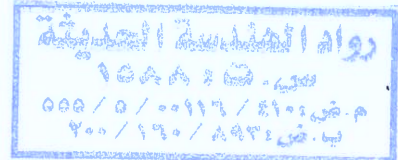 رواد الهندسة الحديثة
س.ت: ١٥٨٨
م.ض: ٤١٠ / ٠٠٩١١٦ / ٥ / ٥٥٥
ب.ض: ٨٩٣ / ١٩٠ / ٢٠٠